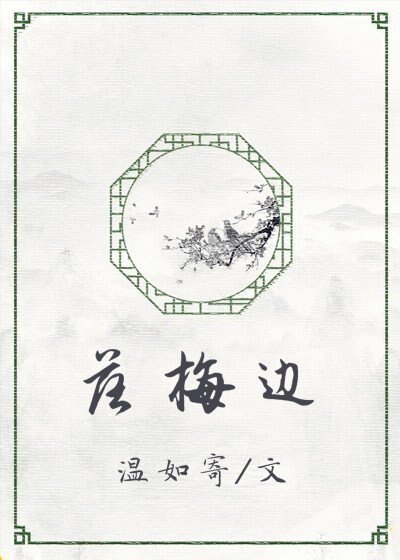 落梅边
温如寄/文